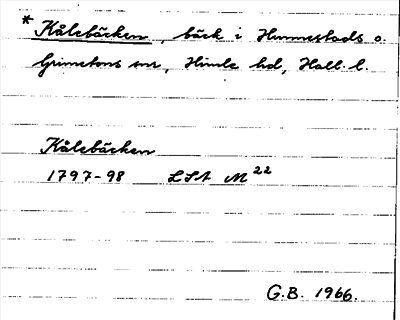 * Kålebäcken, bäck i Hunnestads o.
Grimetons snr, Himle hd, Hall. l.
Kålebäcken
1797-98 LSA M 22
G.B. 1966.